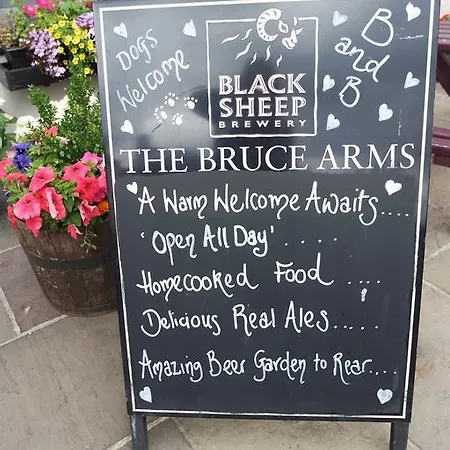 Dogs
Welcome
B
and
B
BLACK
SHEEP
BREWERY
THE BRUCE ARMS
A Warm Welcome Awaits....
'Open All Day' .....
Homecooked Food ....
Delicious Real Ales.....
Amazing Beer Garden to Rear....